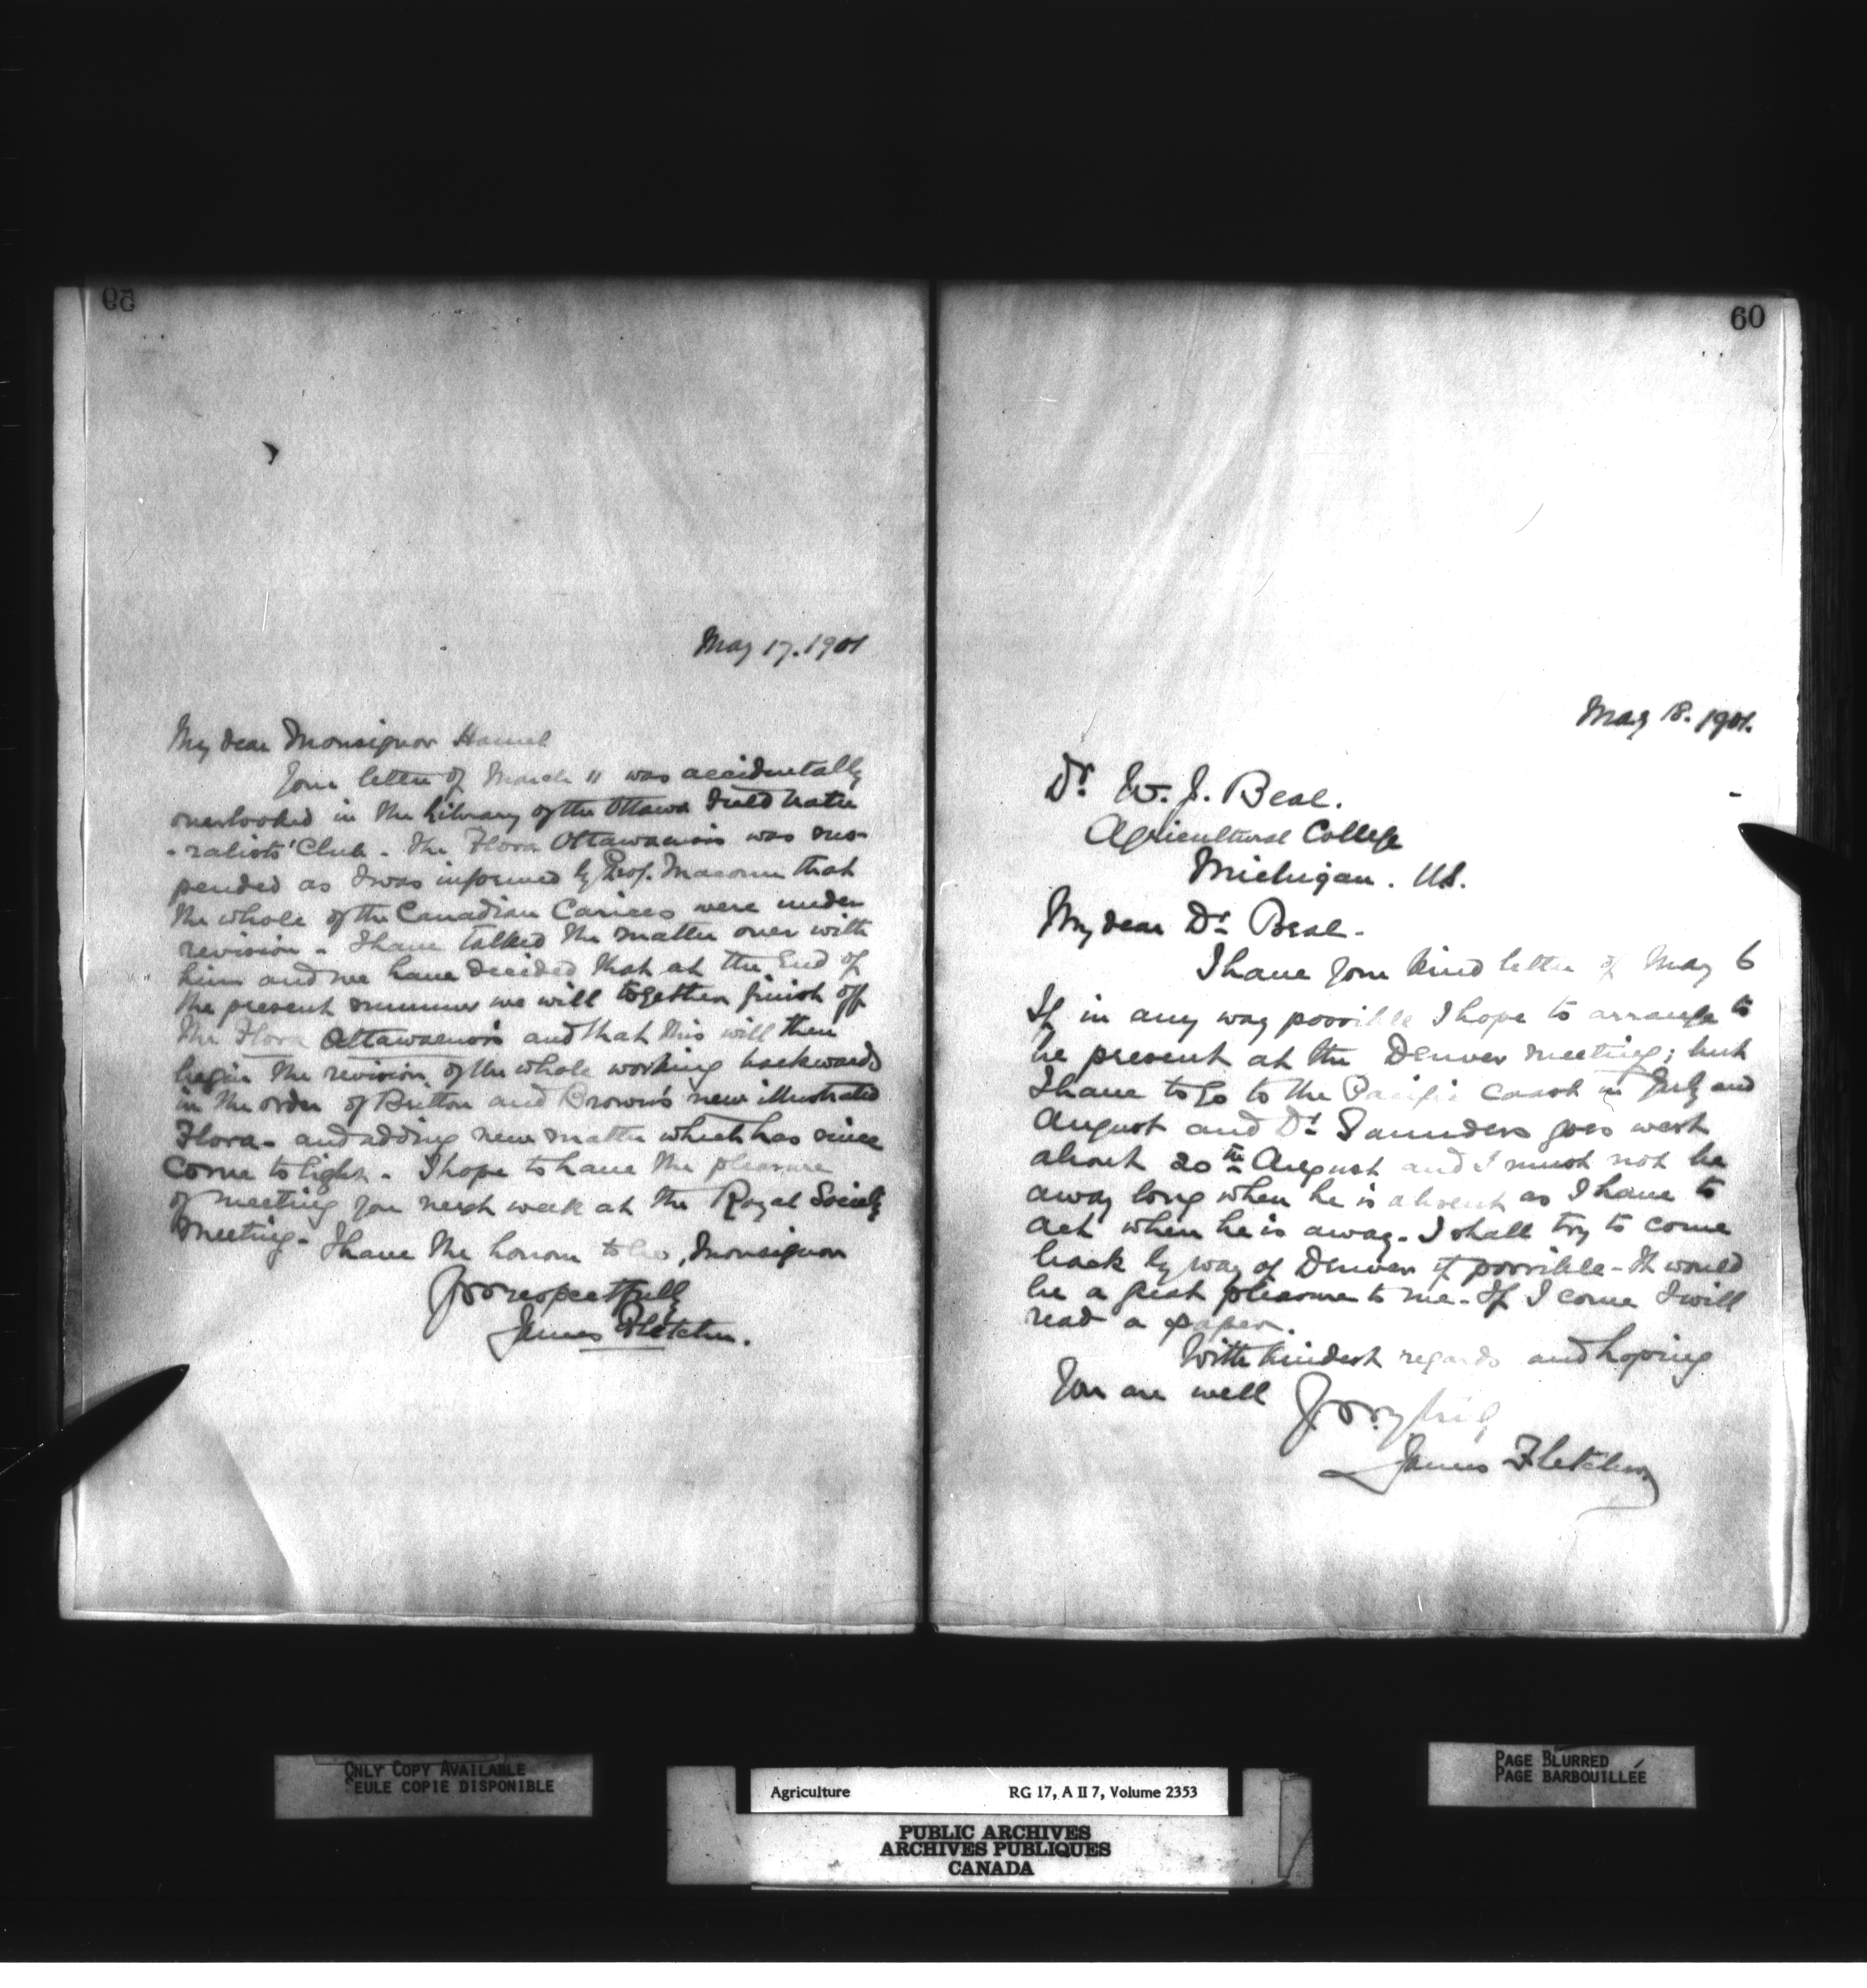 59
May 17. 1901
My dear Monsignor Hamel
Your letter of March 11 was accidentally
overlooked in the Library of the Ottawa Field Natu
-ralists' Club. The Flora Ottawaensis was sus-
pended as I was informed by Prof. Macoun that
the whole of the Canadian Carices were under
revision. I have talked the matter over with
him and we have decided that at the End of
the present summer we will together finish off
the Flora Ottawaensis and that this will then
begin the revision of the whole working backwards
in the order of Britton and Brown's new illustrated
Flora - and adding new matter which has since
come to light. I hope to have the pleasure
of meeting you next week at the Royal Society
meeting. I have the honour to be, Monsignor
Yrs respectfully
James Fletcher.
60
May 18. 1901.
Dr. W. J. Beal.
Agricultural College
Michigan. U.S.
My dear Dr. Beal.
I have your kind letter of May 6
If in any way possible I hope to arrange to
be present at the Denver meeting; but
I have to go to the Pacific coast in July and
August and Dr. Saunders goes west
about 20th August and I must not be
away long when he is absent as I have to
act when he is away. I shall try to come
back by way of Denver if possible - It would
be a great pleasure to me. If I come I will
read a paper.
With kindest regards and hoping
you are well
James Fletcher
ONLY COPY AVAILABLE
SEULE COPIE DISPONIBLE
Agriculture RG 17, A II 7, Volume 2353
PUBLIC ARCHIVES
ARCHIVES PUBLIQUES
CANADA
PAGE BLURRED
PAGE BARBOUILLÉE